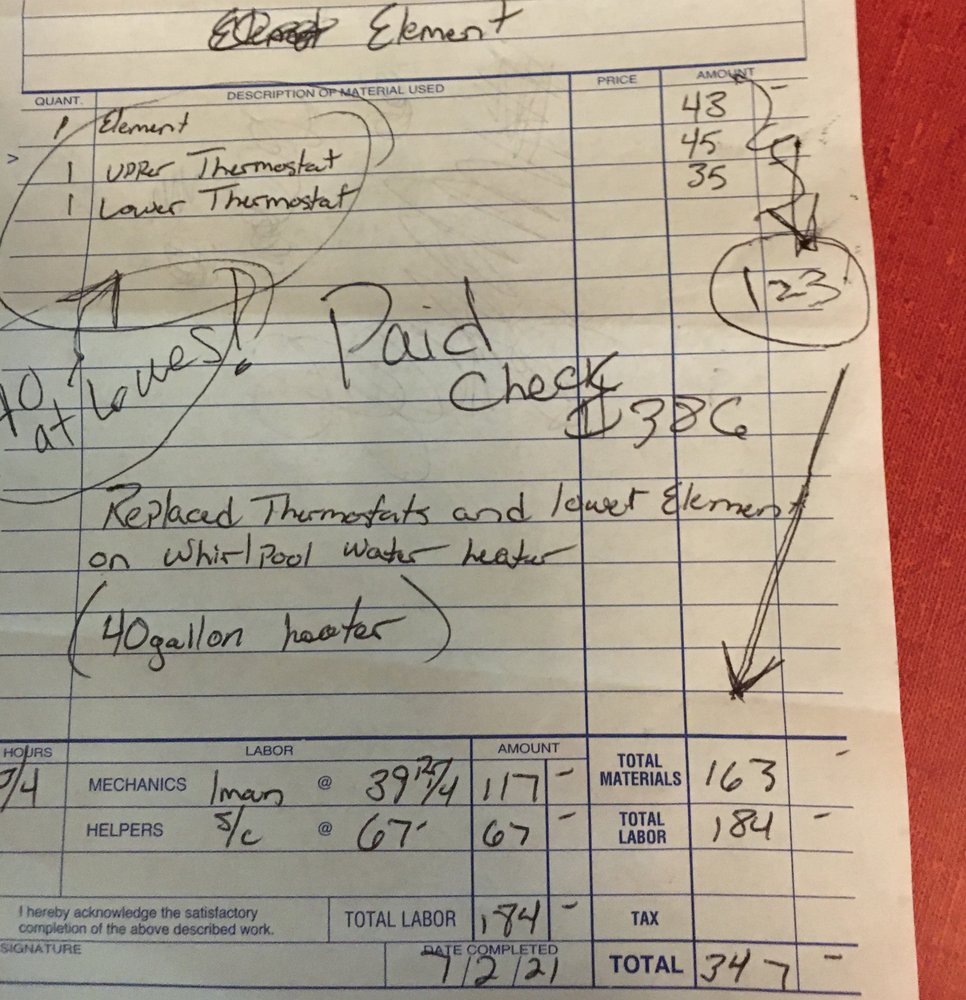 Element
QUANT. DESCRIPTION OF MATERIAL USED PRICE AMOUNT
1 Element 43 -
> 1 UPPer Thermostat 45
1 Lower Thermostat 35
123
40
at Lowes!
Paid
Check
$386
Replaced Thermostats and lower Element
on Whirlpool Water heater
(40gallon heater)
HOURS LABOR AMOUNT
/4 MECHANICS 1man @ 39 /4 117 - TOTAL MATERIALS 163 -
HELPERS S/C @ 67- 67 - TOTAL LABOR 184 -
I hereby acknowledge the satisfactory
completion of the above described work.
TOTAL LABOR 184 - TAX
SIGNATURE DATE COMPLETED
7/2/21 TOTAL 347 -